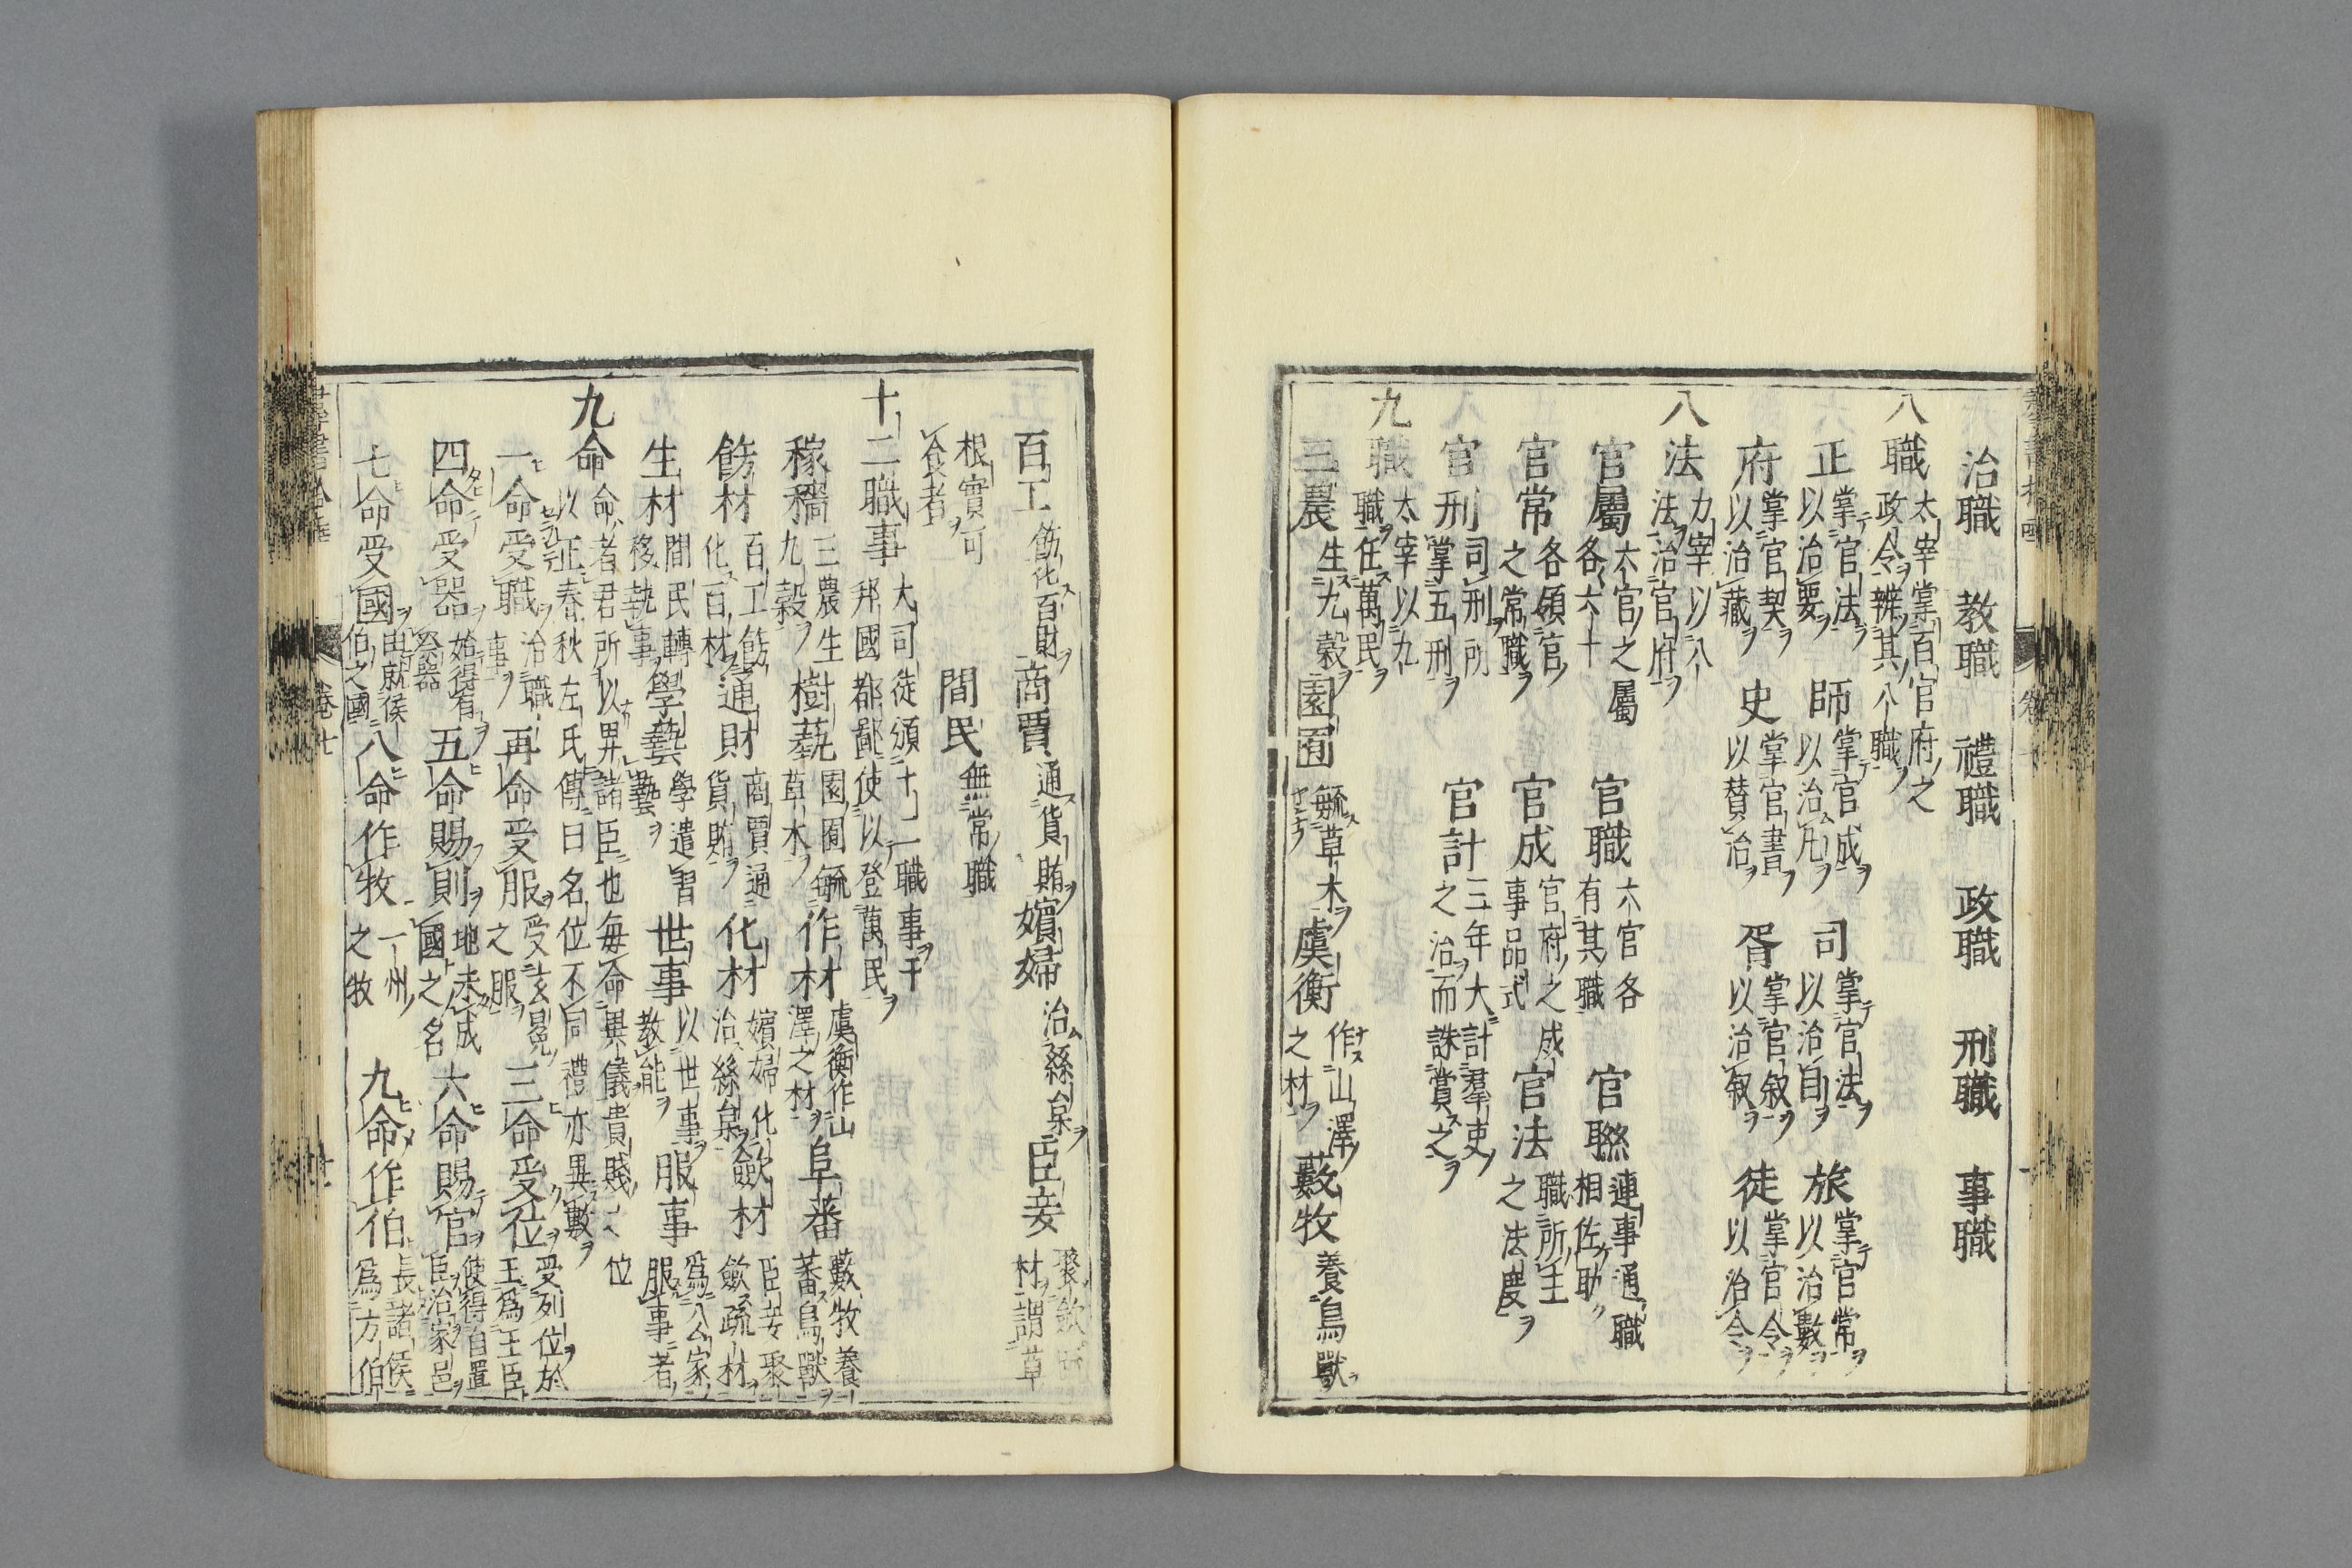 治職　教職　禮職　政職　刑職　事職
八職　太宰掌百官府之政令辨其八職
正　掌官法以治要　師　掌官成以治凡　司　掌官法以治目　旅　掌官常以治數
府　掌官契以治藏　史　掌官書以賛治　胥　掌官敘以治敘　徒　掌官令以治令
八法　力宰以八法治官府
官屬　六官之屬各六十　官職　六官各有其職　官聯　連事通職相佐助
官常　各領官之常職　官成　官府之成事品式　官法　職所主之法度
官刑　司刑所掌五刑　官計　三年大計羣吏之治而誅賞之
九職　太宰以九職任萬民
三農　生九穀　園囿　毓草木　虞衡　作山澤之材　藪牧　養鳥獸
百工　飭化百財　商賈　通貨賄　嬪婦　治絲枲　臣妾　聚斂疏材謂草
根實可食者　間民　無常職
十二職事　大司徒頒十二職事于邦國都鄙使以登萬民
稼穡　三農生九穀　樹蓺　園囿毓草木　作材　虞衡作山澤之材　阜蕃　藪牧養蕃鳥獸
飭材　百工飭化百材　通財　商賈通貨賄　化材　嬪婦化治絲枲　歛材　臣妾聚歛疏材
生材　間民轉移執事　學藝　學遣習藝　世事　以世事教能　服事　爲公家服事者
九命　命者君所以畀諸臣也每命異儀貴賤以位以正春秋左氏傳曰名位不同禮亦異數
一命受職　治職事　再命受服　受玄冕之服　三命受位　受列位於王爲王臣
四命受器　始得有祭器　五命賜則　地未成國之名　六命賜官　使得自置臣治家邑
七命受國　出就侯伯之國　八命作牧　一州之牧　九命作伯　長諸侯爲方伯
卷七